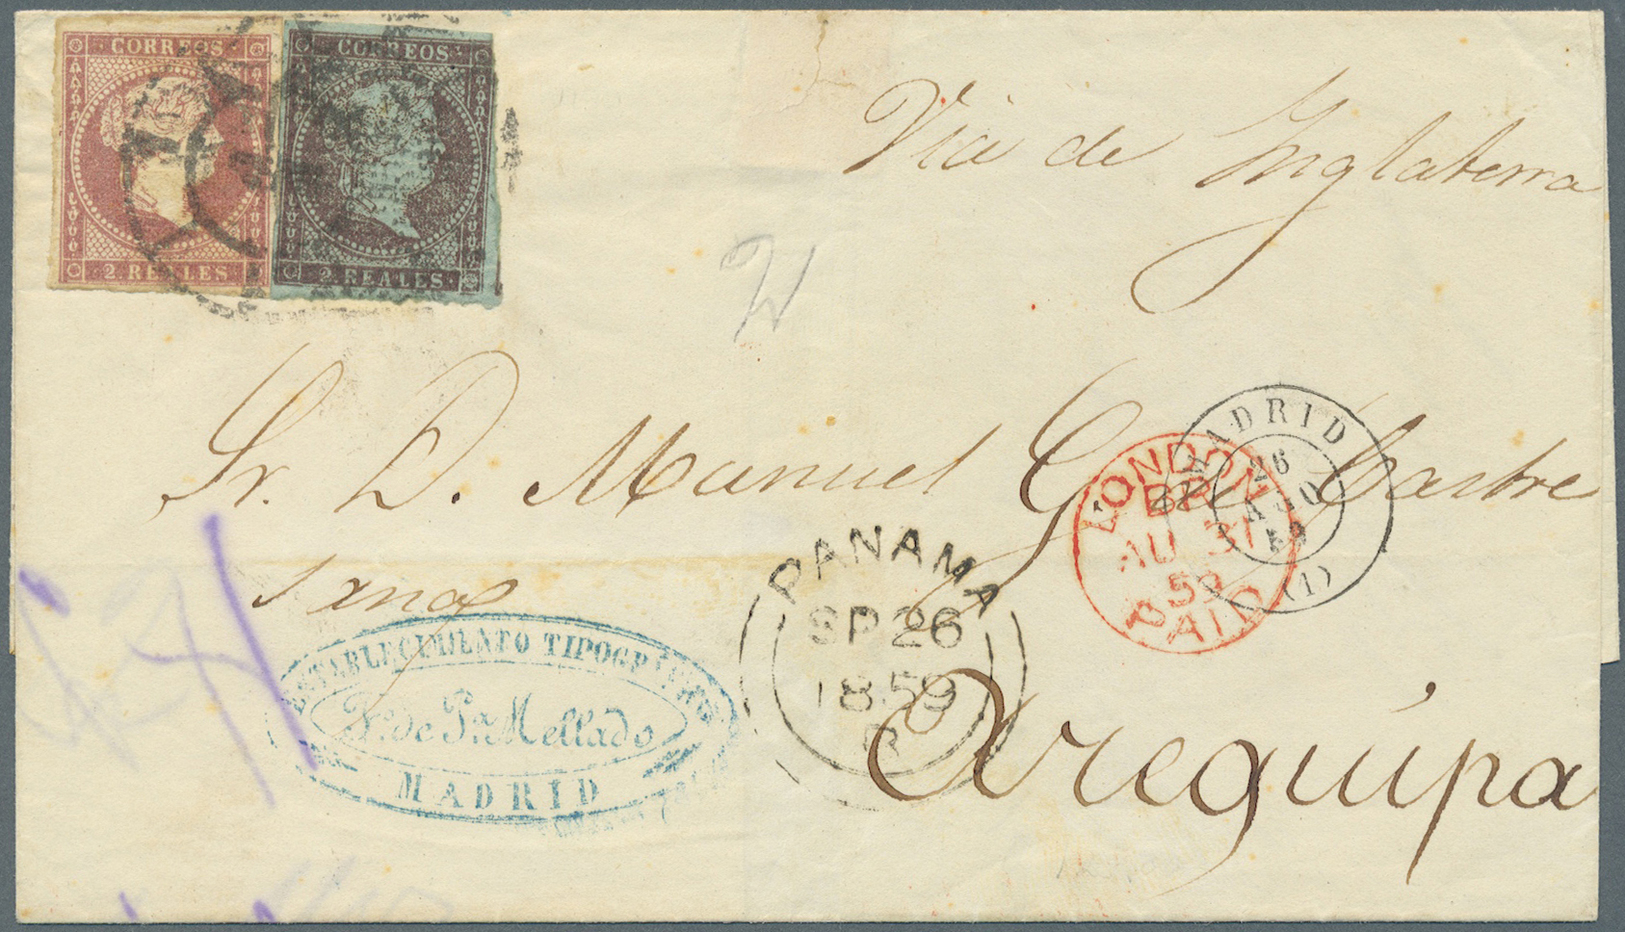 CORREOS
2. REALES.
CORREOS
2. REALES.
Via de Inglaterra
Sr. D. Manuel G. de Castre
sanos
MADRID
26
AGO
59
(1)
LONDON
AU 31
59
PAID
PANAMA
SP 26
1859
ESTABLECIMIENTO TIPOGRÁFICO
Fo. de Pa. Mellado
MADRID
Arequipa